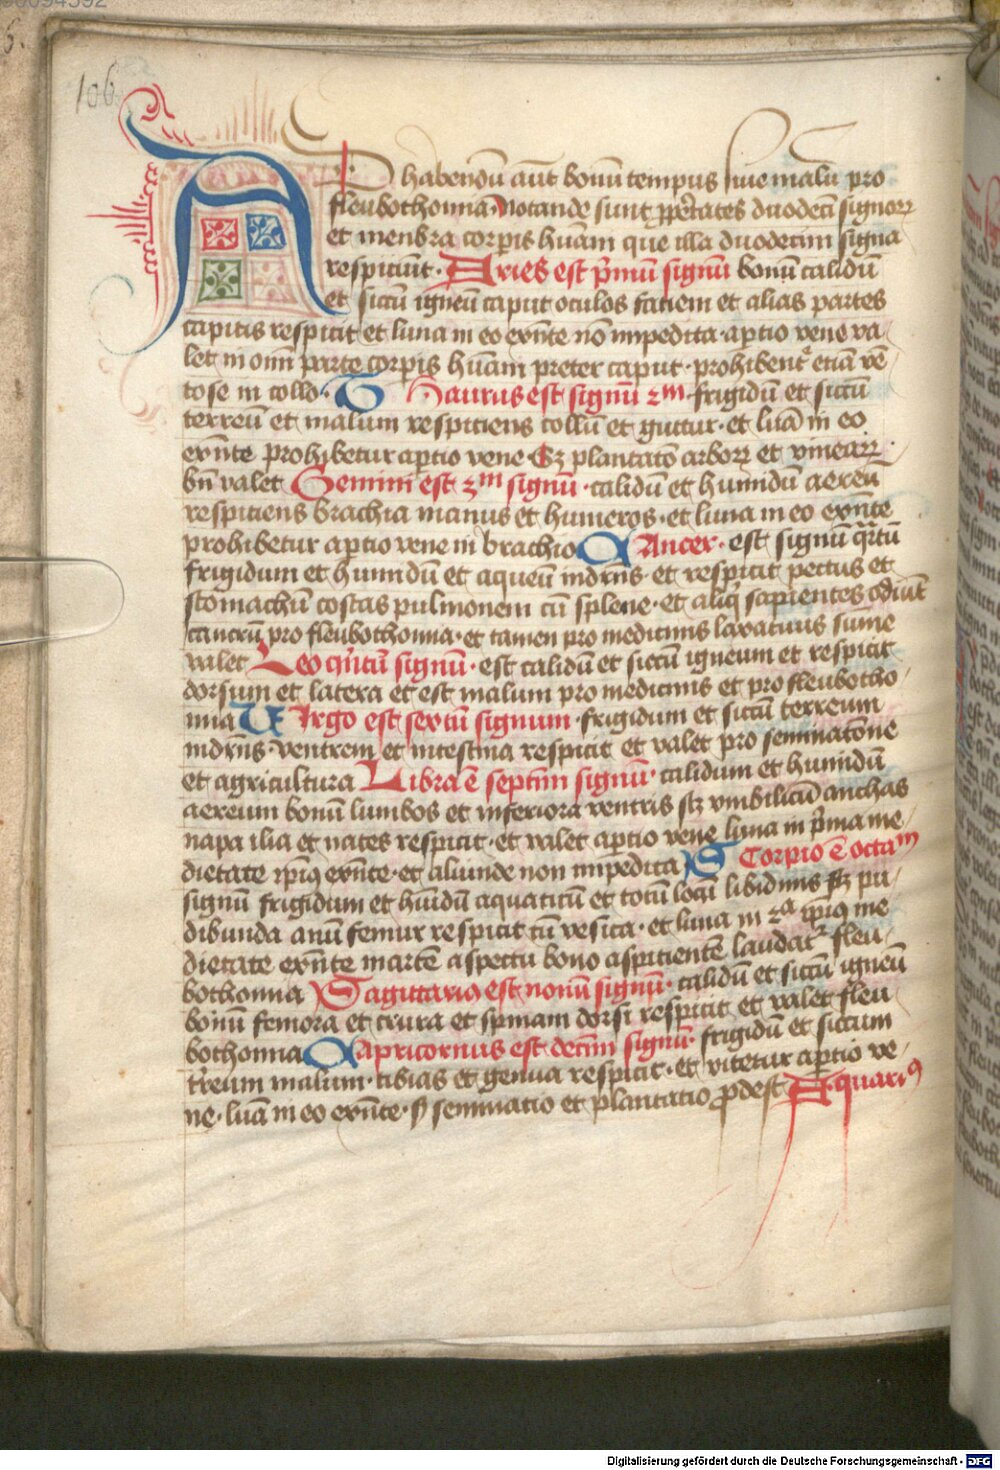 106
AD habendū aūt bonū tempus siue malū pro
fleubothomia notande sunt ꝓpͥetates duodecī signoꝝ
et menbra corpīs hūam que illa duodecim signa
respiciūt· Aries est pͥmū signū bonū calidū
et siccū igneū caput oculos faciem et alias partes
capitis respicit et luna in eo exn̄te nō impedita apercio vene va
let in om̄i parte corpīs hūam preter caput· prohibent᷑ etiā vē
tose in collo· Taurus est signū 2m frigidū et siccū
terreū et malum respiciens collū et gutur· et luā in eo
exn̄te prohibetur apcio vene Sꝫ plantatō arboꝝ et vineaꝝ
bn̄ valet Gemini est 3m signū· calidū et humidū aereū
respiciens brachia manus et humeros· et luna in eo exn̄te
prohibetur apcio vene in brachio CAncer· est signū qͣrtū
frigidum et humidū et aqueū indr̄ns et respicit pectus et
stomachū costas pulmonem cū splene· et aliq̄ sapientes
cancrū pro fleubothomia· et tamen pro medicinis laxatiuis sūme
valet Leo qͥntū signū· est calidū et siccū igneum et respicit
dorsum et latera et est malum pro medicinis et pro fleubotho
mia VIrgo est sextū signum· frigidum et siccū terreum
indr̄ns ventrem et intestina respicit et valet pro seminatōne
et agricultura Libra ē septīm signū· calidum et humidū
aereum bonū lumbos et inferiora ventris sꝫ vmbilicū anchas
napa ilia et nates respicit· et valet apcio vene luna in pͥma me
dietate ip̄iꝰ exn̄te· et aliunde non impedita SCorpio ē octam
signū frigidum et hūidū aquaticū et totū locū libidinis sꝫ pu
dibunda anū femur respicit cū vesica· et luna in 2a ip̄iꝰ me
dietate exn̄te martē aspectu bono aspicientē laudat᷑ fleu
bothomia Sagittariꝰ est nonū signū· calidū et siccū igneū
bonū femora et crura et spinam dorsi respicit et valet fleu
bothomia Capricornus est decīm signū· frigidū et siccum
tr̄reum malum· tibias et genua respicit· et vitetur apcio ve
ne· luā in eo exn̄te· s̄ seminatio et plantatio ꝓdest Aquariꝰ
Digitalisierung gefördert durch die Deutsche Forschungsgemeinschaft - DFG